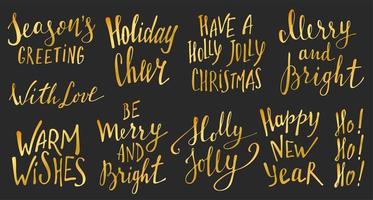 Season's
GREETING
Holiday
Cheer
HAVE A
HOLLY JOLLY
CHRISTMAS
Merry
and
Bright
With Love
WARM
WISHES
BE
Merry
AND
Bright
Holly
Jolly
Happy
NEW
YEAR
Ho!
Ho!
Ho!